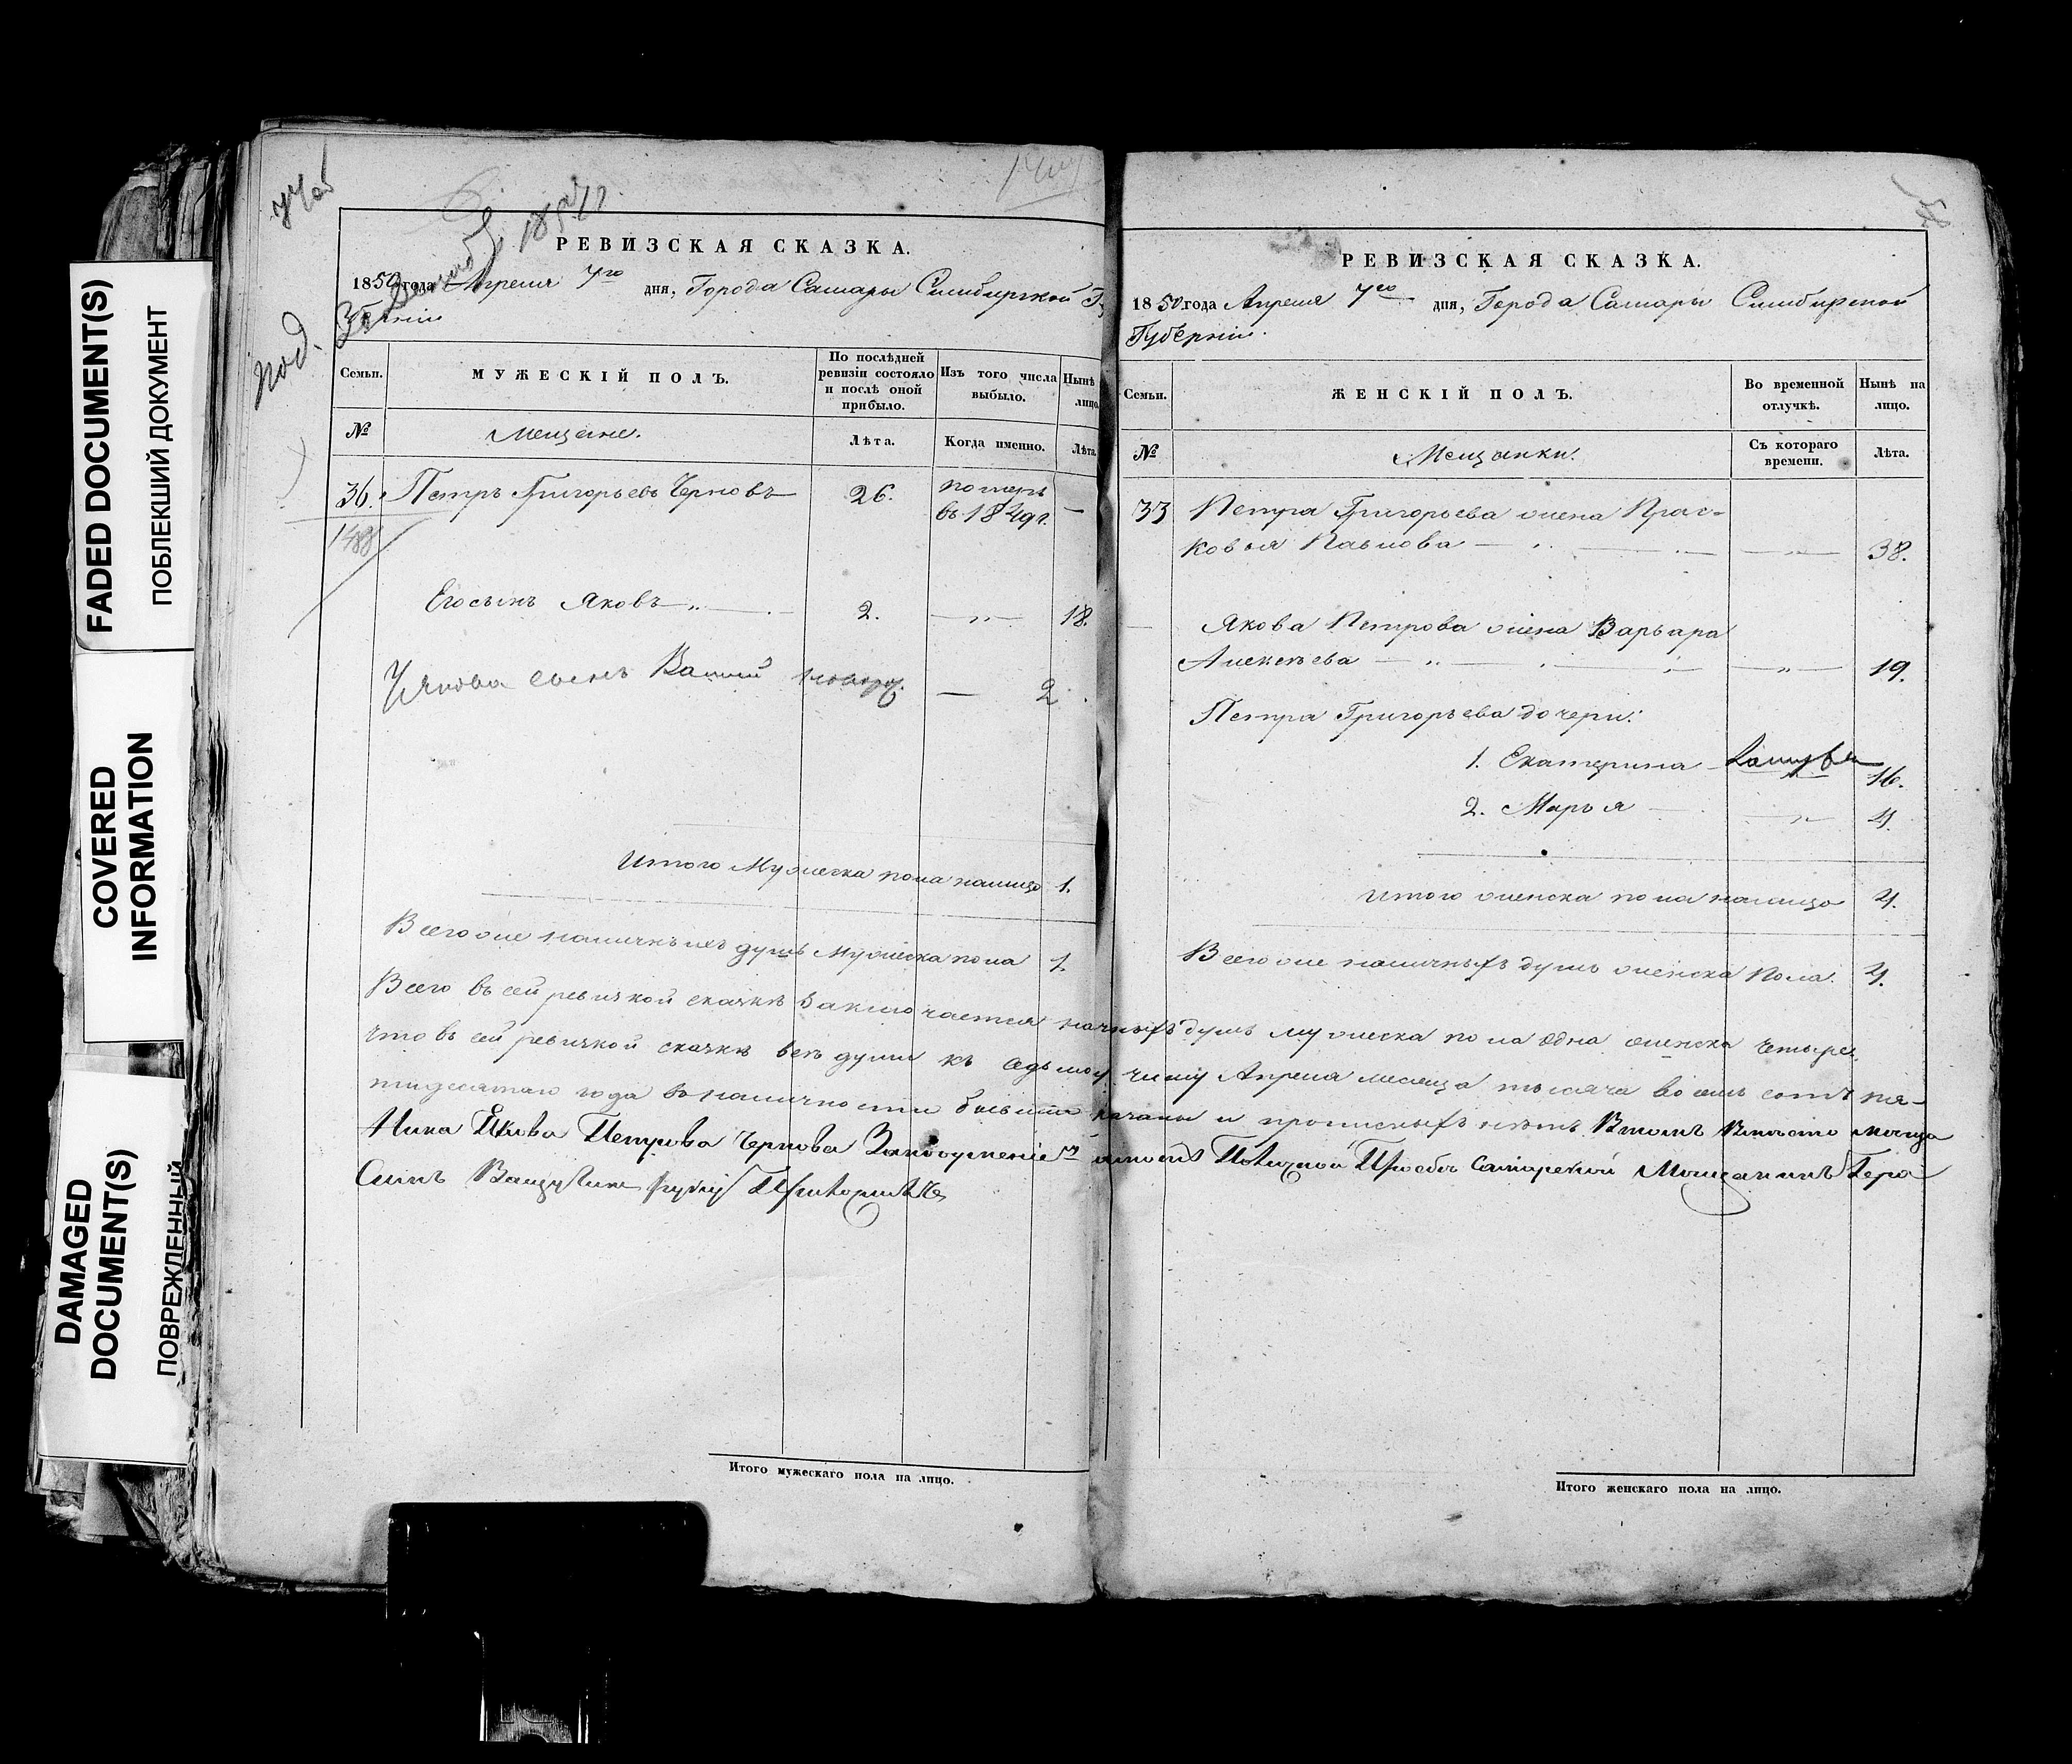 FADED DOCUMENT(S)
ПОБЛЕКШИЙ ДОКУМЕНТ
COVERED
INFORMATION
DAMAGED
DOCUMENT(S)
ПОВРЕЖДЕННЫЙ
под.
РЕВИЗСКАЯ СКАЗКА.
1850 года Апреля 7го дня, Города Самары Симбирской
Семьи.
МУЖЕСКІЙ ПОЛЪ.
По послѣдней ревизіи состояло и послѣ оной прибыло.
Изъ того числа выбыло.
Нынѣ лицо.
№
Мещане.
Лѣта.
Когда именно.
Лѣта.
36. Петръ Григорьевъ Черновъ 26. померъ
въ 1849 г. —
1488
Его сынъ Яковъ „ — 2. — „ — 18.
У Якова сынъ — 2
Итого Мужеска пола налицо 1.
Всего же наличныхъ душъ Мужеска пола 1.
РЕВИЗСКАЯ СКАЗКА.
1850 года Апреля 7го дня, Города Самары Симбирской
Губерніи.
Семьи.
ЖЕНСКІЙ ПОЛЪ.
Во временной отлучкѣ.
Нынѣ на лицо.
№
Мещанки.
Съ котораго времени.
Лѣта.
33 Петра Григорьева жена Прас-
ковья Павлова — „ — 38.
Якова Петрова жена Варвара
Алексѣева — „ — „ — 19.
Петра Григорьева дочери:
1. Екатерина 16.
2. Марья — „ — 4.
Итого женска пола налицо 4.
Всего же наличныхъ душъ женска пола. 4.
Всего въ сей ревизкой сказкѣ заключается душъ мужеска пола одна женска четыре,
что въ сей ревизкой сказкѣ всѣ души къ седьмому числу Апреля месяца тысяча восемь сотъ пя-
тидесятаго года въ наличности бывшія показаны и прописныхъ нѣтъ Въ томъ Вместо меща
Нина Якова Петрова Чернова прозьбе Самарской Мещанинъ
руку Приложилъ
Итого мужескаго пола на лицо.
Итого женскаго пола на лицо.